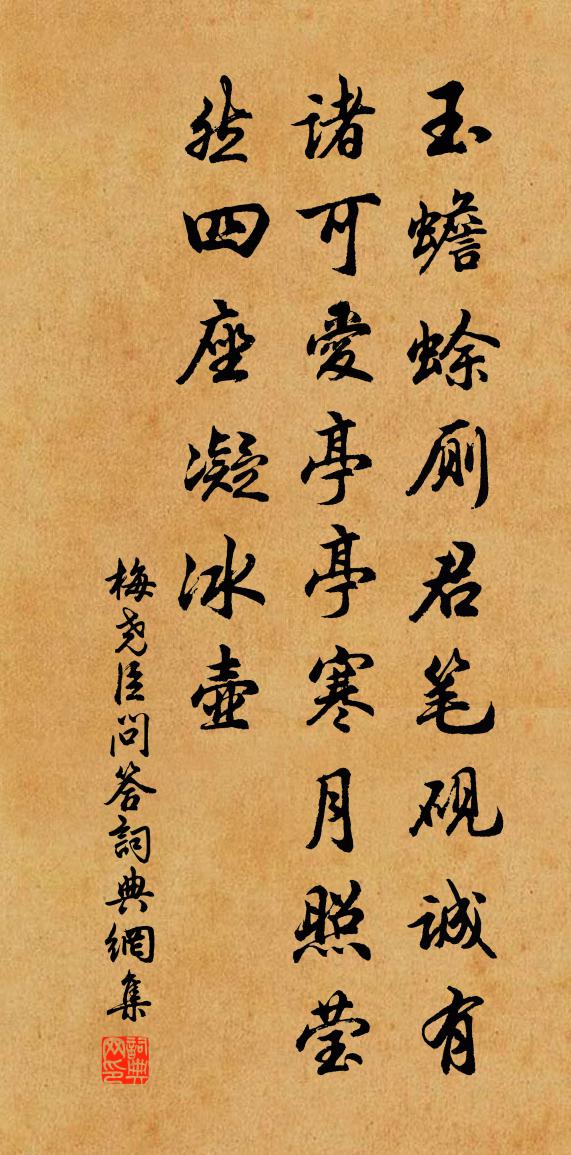 玉蟾蜍厕君笔砚诚有
诸可愛亭亭寒月照莹
然四座凝冰壶
梅尧臣问答詞典網集
詞典网印